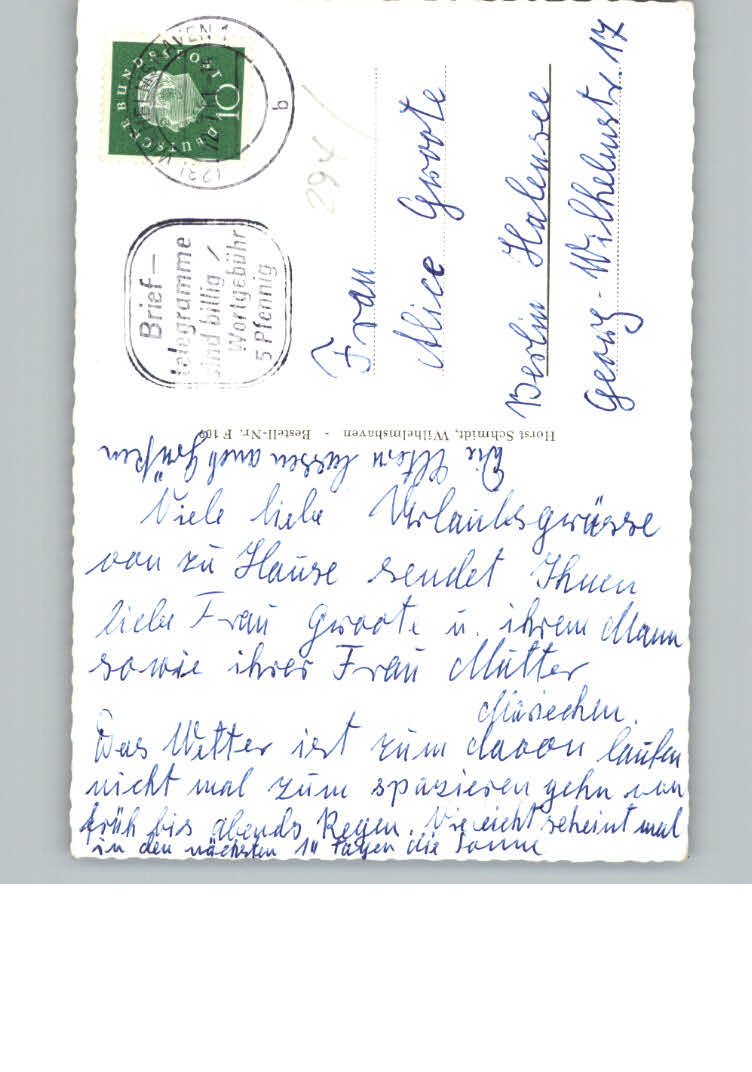 Viele liebe Urlaubsgrüsse
von zu Hause sendet Ihnen
liebe Frau Groote u. ihrem Mann
sowie ihrer Frau Mutter
Mariechen.
Das Wetter ist zum davon laufen
nicht mal zum spazieren gehn von
früh bis abends Regen. Vieleicht scheint mal
in den nächsten 14 Tagen die Sonne
Die Eltern lassen auch Grüßen
Horst Schmidt, Wilhelmshaven - Bestell-Nr. F 169
Frau
Alice Groote
Berlin Halensee
Georg-Wilhelmstr. 17
294
Brief-
telegramme
sind billig
Wortgebühr
5 Pfennig
DEUTSCHE BUNDESPOST
10
b